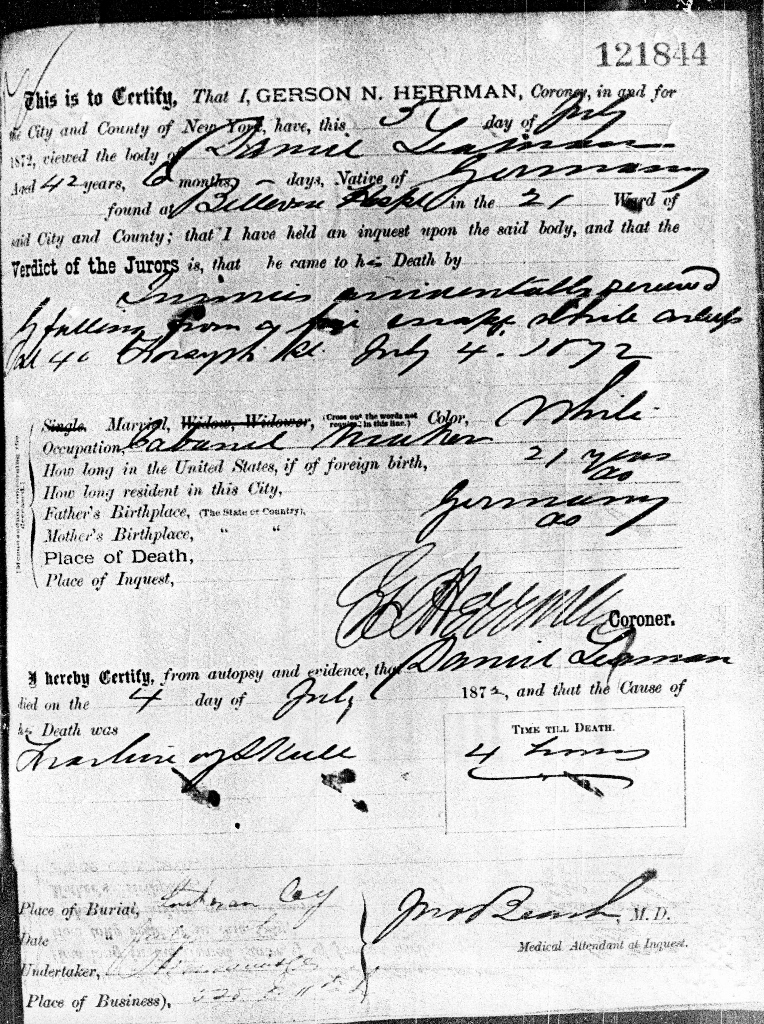 121844
This is to Certify, That I, GERSON N. HERRMAN, Coroner, in and for
the City and County of New York, have, this 5 day of July
1872, viewed the body of Daniel
Aged 42 years, 6 months, – days, Native of Germany
found at Bellevue Hospl in the 21 Ward of
said City and County; that I have held an inquest upon the said body, and that the
Verdict of the Jurors is, that he came to his Death by
Injuries accidentally received
by falling from a fire escape while asleep
at 40 Forsyth St. July 4th 1872
Single, Married, Widow, Widower, (Cross out the words not required in this line.) Color, White
Occupation, Cabinet Maker
How long in the United States, if of foreign birth, 21 years
How long resident in this City, do
Father's Birthplace, (The State or Country), Germany
Mother's Birthplace, " " do
Place of Death,
Place of Inquest,
Herrman Coroner.
I hereby Certify, from autopsy and evidence, that Daniel
died on the 4 day of July 1872, and that the Cause of
his Death was
TIME TILL DEATH.
Fracture of Skull
4 hours
Place of Burial,
Jno Beach, M.D.
Date "
Medical Attendant at Inquest.
Undertaker,
Place of Business),